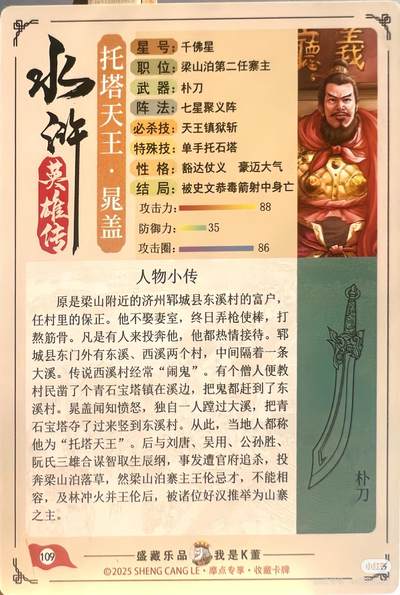 水浒
英雄传
托塔天王·晁盖
星 号:千佛星
职 位:梁山泊第二任寨主
武 器:朴刀
阵 法:七星聚义阵
必杀技:天王镇狱斩
特殊技:单手托石塔
性 格:豁达仗义 豪迈大气
结 局:被史文恭毒箭射中身亡
攻击力: 88
防御力: 35
攻击圈: 86
義
人物小传
原是梁山附近的济州郓城县东溪村的富户,
任村里的保正。他不娶妻室,终日弄枪使棒,打
熬筋骨。凡是有人来投奔他,他都热情接待。郓
城县东门外有东溪、西溪两个村,中间隔着一条
大溪。传说西溪村经常“闹鬼”。有个僧人便教
村民凿了个青石宝塔镇在溪边,把鬼都赶到了东
溪村。晁盖闻知愤怒,独自一人蹚过大溪,把青
石宝塔夺了过来竖到东溪村。从此,当地人都称
他为“托塔天王”。后与刘唐、吴用、公孙胜、
阮氏三雄合谋智取生辰纲,事发遭官府追杀,投
奔梁山泊落草,然梁山泊寨主王伦忌才,不能相
容,及林冲火并王伦后,被诸位好汉推举为山寨
之主。
朴刀
109
盛藏乐品 我是K董
©2025 SHENG CANG LE·摩点专享·收藏卡牌
小红书